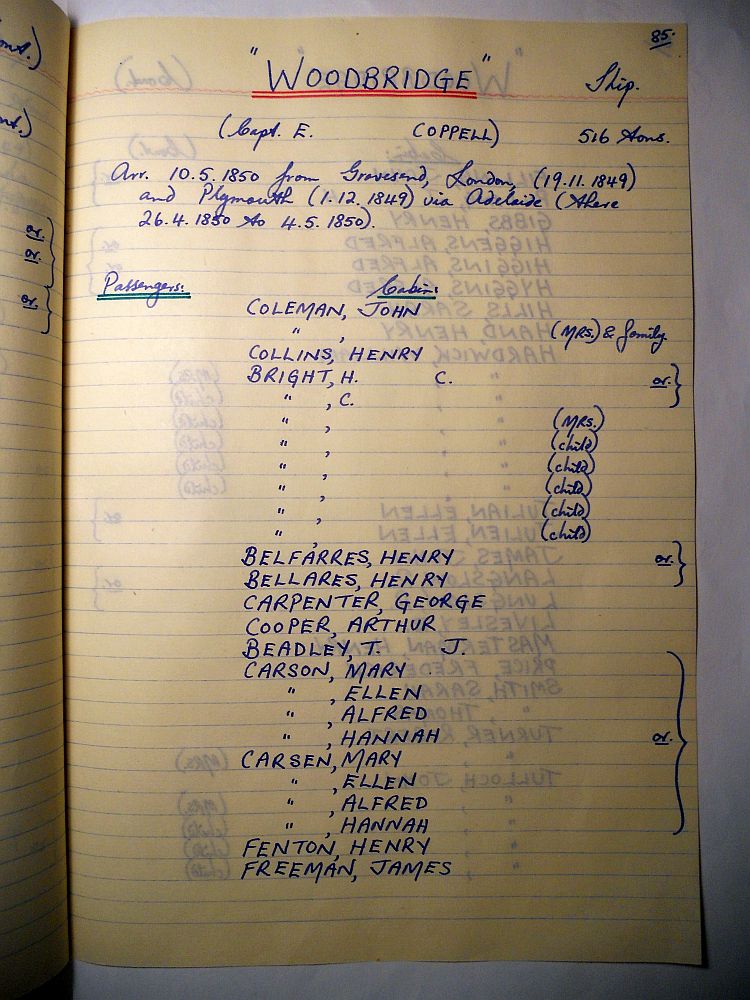 85.
"WOODBRIDGE" Ship.
(Capt. E. COPPELL) 516 tons.
Arr. 10.5.1850 from Gravesend, London, (19.11.1849)
and Plymouth (1.12.1849) via Adelaide (there
26.4.1850 to 4.5.1850).
Passengers: Cabin:
COLEMAN, JOHN
" , (MRS.) & family.
COLLINS, HENRY
BRIGHT, H. C. or.
" , C.
" , (MRS.)
" , (child)
" , (child)
" , (child)
" , (child)
" , (child)
BELFARRES, HENRY or.
BELLARES, HENRY
CARPENTER, GEORGE
COOPER, ARTHUR
BEADLEY, T. J.
CARSON, MARY
" , ELLEN
" , ALFRED
" , HANNAH or.
CARSEN, MARY
" , ELLEN
" , ALFRED
" , HANNAH
FENTON, HENRY
FREEMAN, JAMES